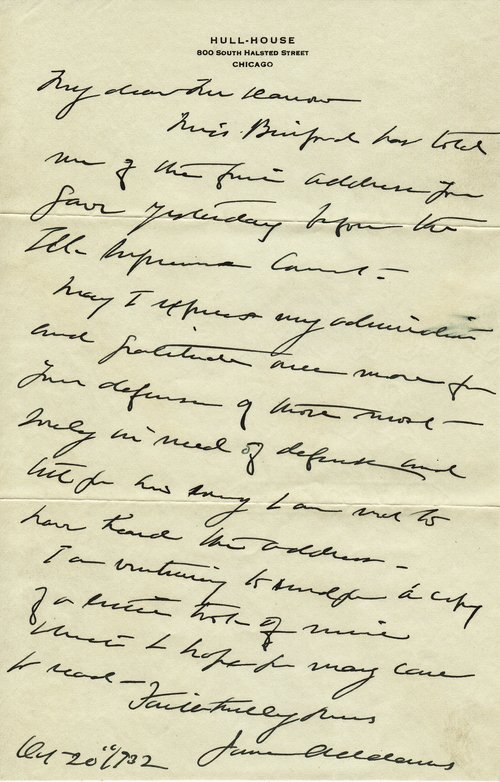 HULL-HOUSE
800 SOUTH HALSTED STREET
CHICAGO
My dear Mr Darrow
Miss Binford has told
me of the fine address you
gave yesterday before the
Ill. Supreme Court -
May I express my admiration
and gratitude once more for
your defense of those most
in need of defense and
how sorry I am not to
have heard the address -
I am venturing to send you a copy
of a recent book of mine
which I hope you may care
to read -
Faithfully yours
Jane Addams
Oct 20" 1932